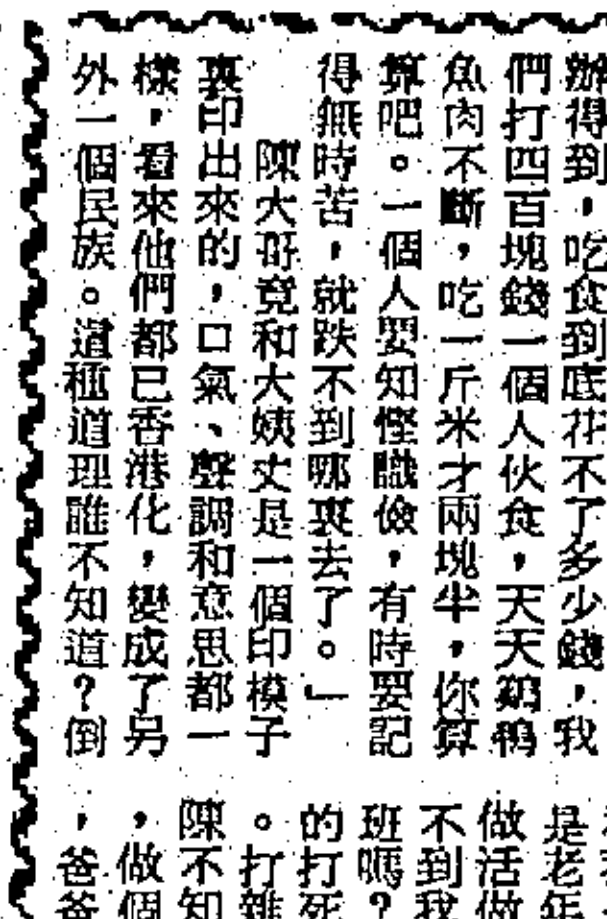 辦得到，吃食到底花不了多少錢，我
們打四百塊錢一個人伙食，天天鷄鴨
魚肉不斷，吃一斤米才兩塊半，你算
算吧。一個人要知慳識儉，有時要記
得無時苦，就跌不到哪裏去了。」
陳大哥竟和大姨丈是一個印模子
裏印出來的，口氣、聲調和意思都一
樣，看來他們都已香港化，變成了另
外一個民族。這種道理誰不知道？倒
是老年
做活做
不到我
班嗎？
的打死
。打雜
陳不知
，做個
，爸爸